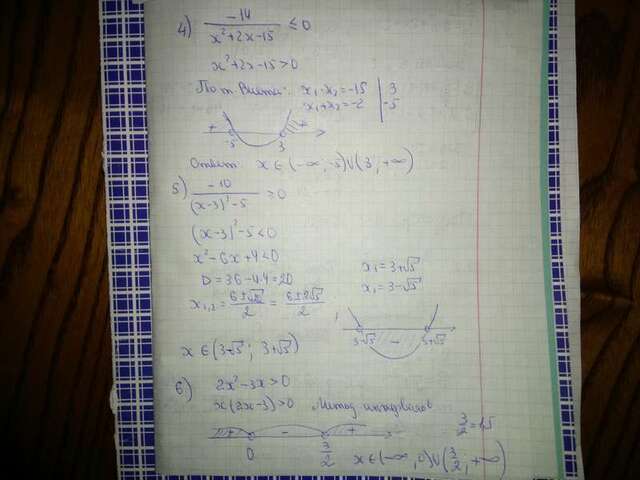 4) -14 / (x²+2x-15) ≤ 0
x²+2x-15>0
По т. Виета: x₁·x₂=-15 | 3
x₁+x₂=-2 | -5
+ - +
-5 3
Ответ: x ∈ (-∞, -5)∪(3, +∞)
5) -10 / ((x-3)²-5) ≥ 0
(x-3)²-5<0
x²-6x+4<0
D=36-4·4=20
x₁=3+√5
x₁=3-√5
x₁,₂ = (6±√20)/2 = (6±2√5)/2
-
3-√5 3+√5
x ∈ (3-√5; 3+√5)
6) 2x²-3x>0
x(2x-3)>0 Метод интервалов
3/2=1,5
+ - +
0 3/2
x ∈ (-∞, 0)∪(3/2, +∞)